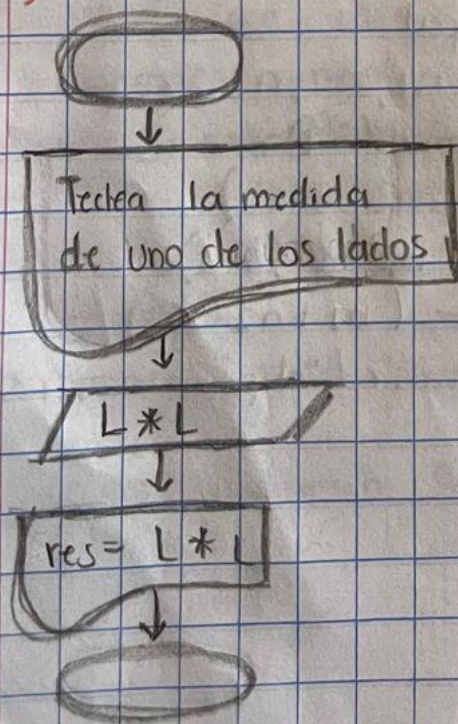 Teclea la medida
de uno de los lados
L * L
res= L * L